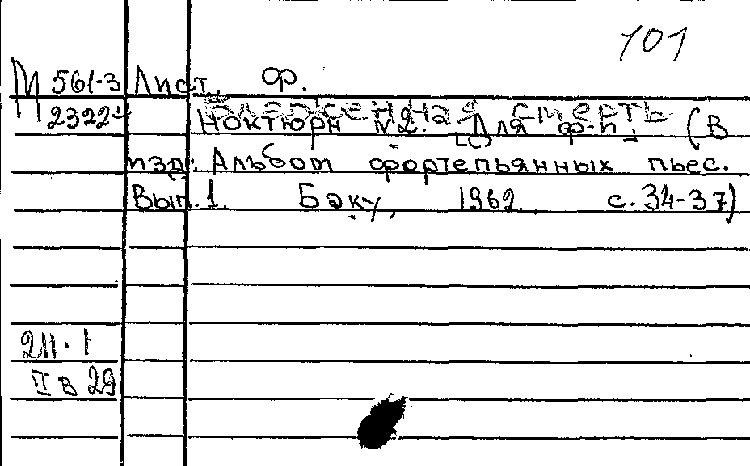 101
М 561-3 Лист, Ф.
2322 Блаженная смерть
Ноктюрн №2. Для ф-п. (В
изд: Альбом фортепьянных пьес.
Вып. 1. Баку, 1962 с. 34-37)
211.1
II в 29